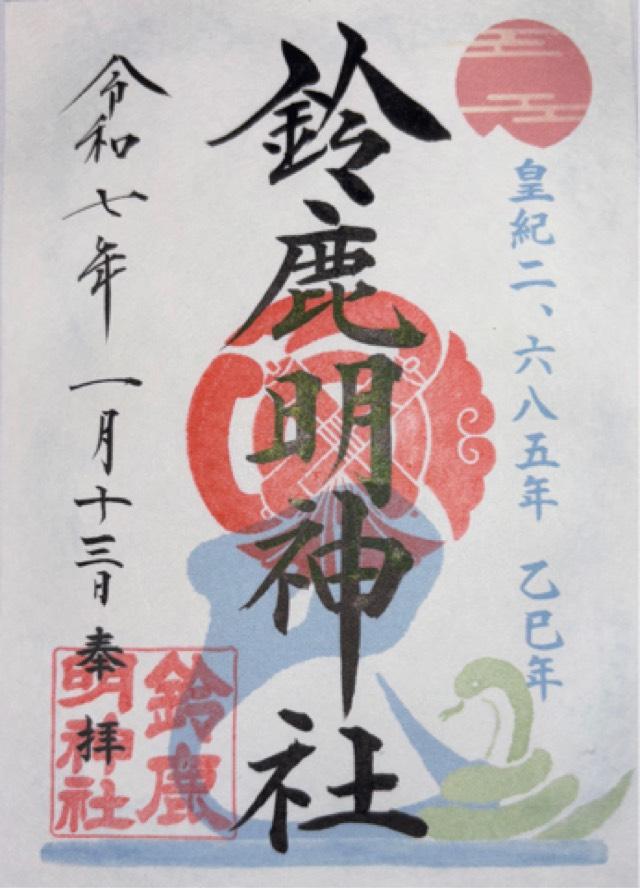 皇紀二、六八五年 乙巳年
鈴鹿明神社
令和七年一月十三日 奉拝
鈴鹿
明神社